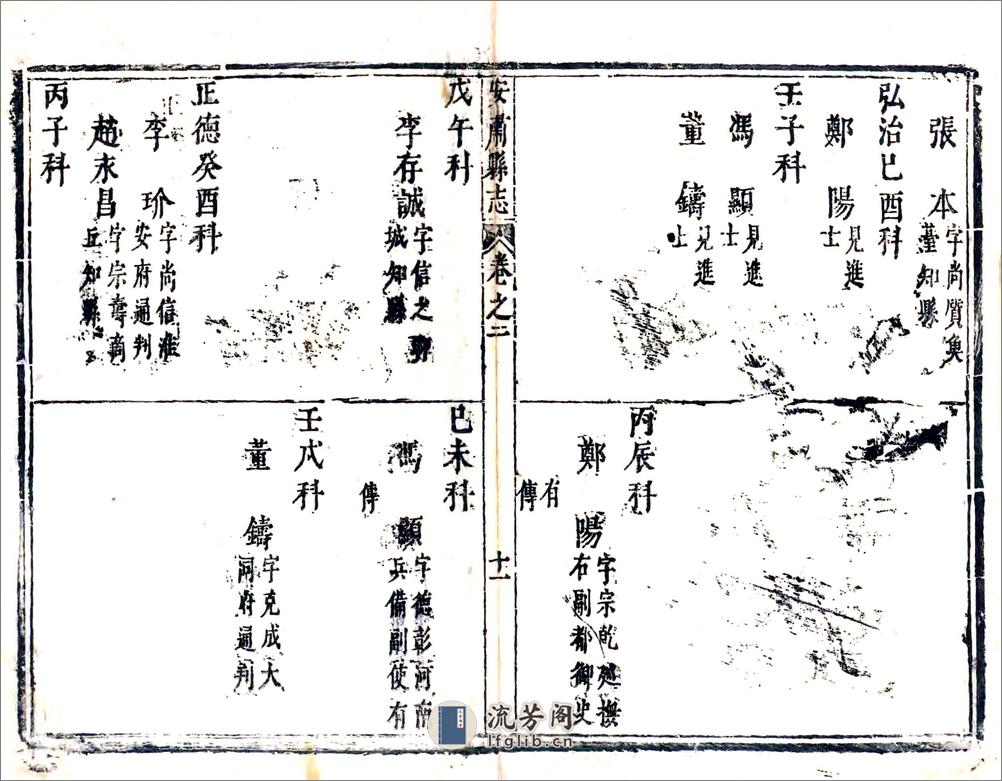 張本字尚質魚
臺知縣
弘治己酉科
鄭陽見進
士
壬子科
馮顯見進
士
董鑄見進
士
丙辰科
鄭陽字宗乾廵撫
右副都御史
有
傳
安肅縣志 卷之二 十一
戊午科
李存誠字信之
城知縣
正德癸酉科
李玠字尚信淮
安府通判
趙永昌字宗壽商
丘知縣
丙子科
己未科
馮顯字德彰河南
兵備副使有
傳
壬戌科
董鑄字克成大
同府通判
流芳阁
lfglib.cn